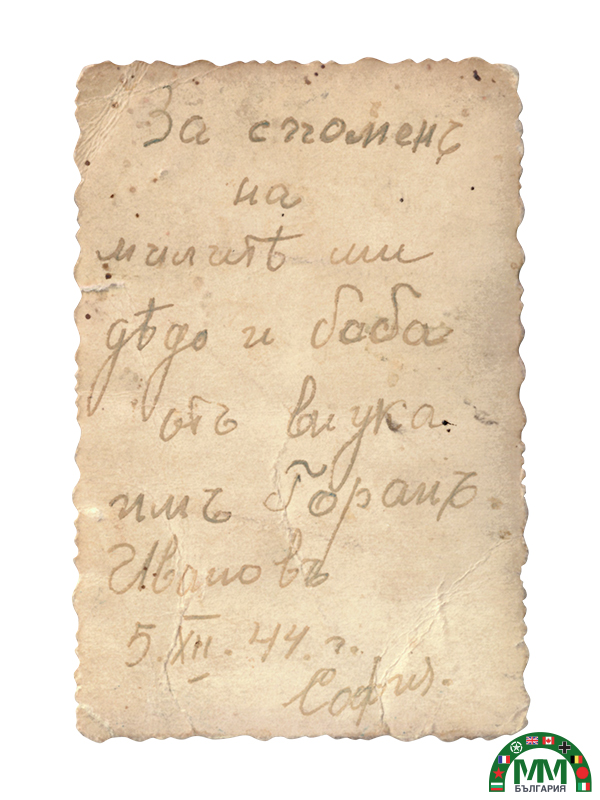 За споменъ
на
милитѣ ми
дѣдо и баба
отъ внука
имъ Горанъ
Ивановъ
5.XII.44.г.
София.
ММ
БЪЛГАРИЯ